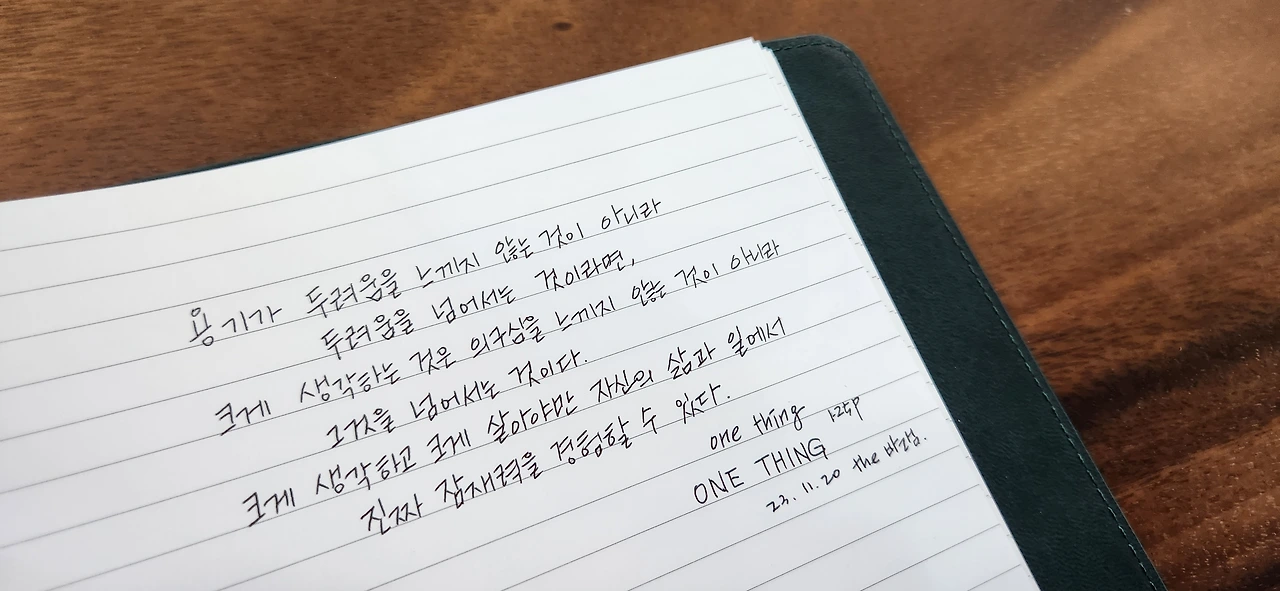 용기가 두려움을 느끼지 않는 것이 아니라
두려움을 넘어서는 것이라면,
크게 생각하는 것은 의구심을 느끼지 않는 것이 아니라
그것을 넘어서는 것이다.
크게 생각하고 크게 살아야만 자신의 삶과 일에서
진짜 잠재력을 경험할 수 있다.
one thing 125P
ONE THING
23. 11. 20 the 바램.